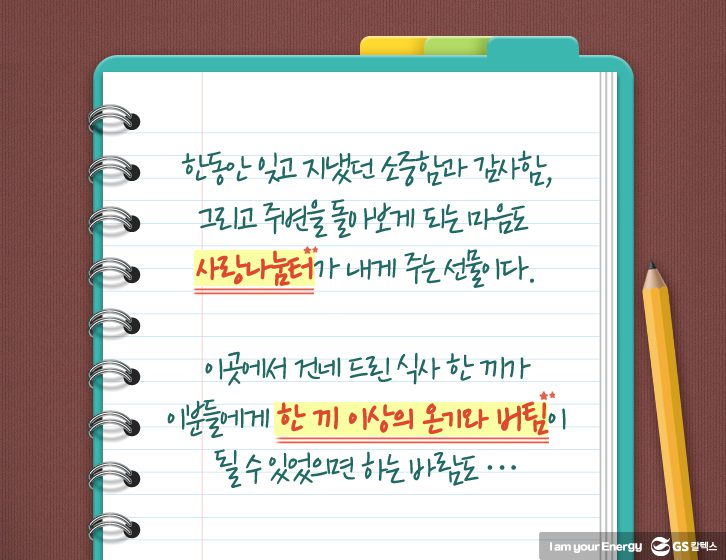 한동안 잊고 지냈던 소중함과 감사함,
그리고 주변을 돌아보게 되는 마음도
사랑나눔터가 내게 주는 선물이다.
이곳에서 건네 드린 식사 한 끼가
이분들에게 한 끼 이상의 온기와 버팀이
될 수 있었으면 하는 바람도 ···
I am your Energy GS칼텍스